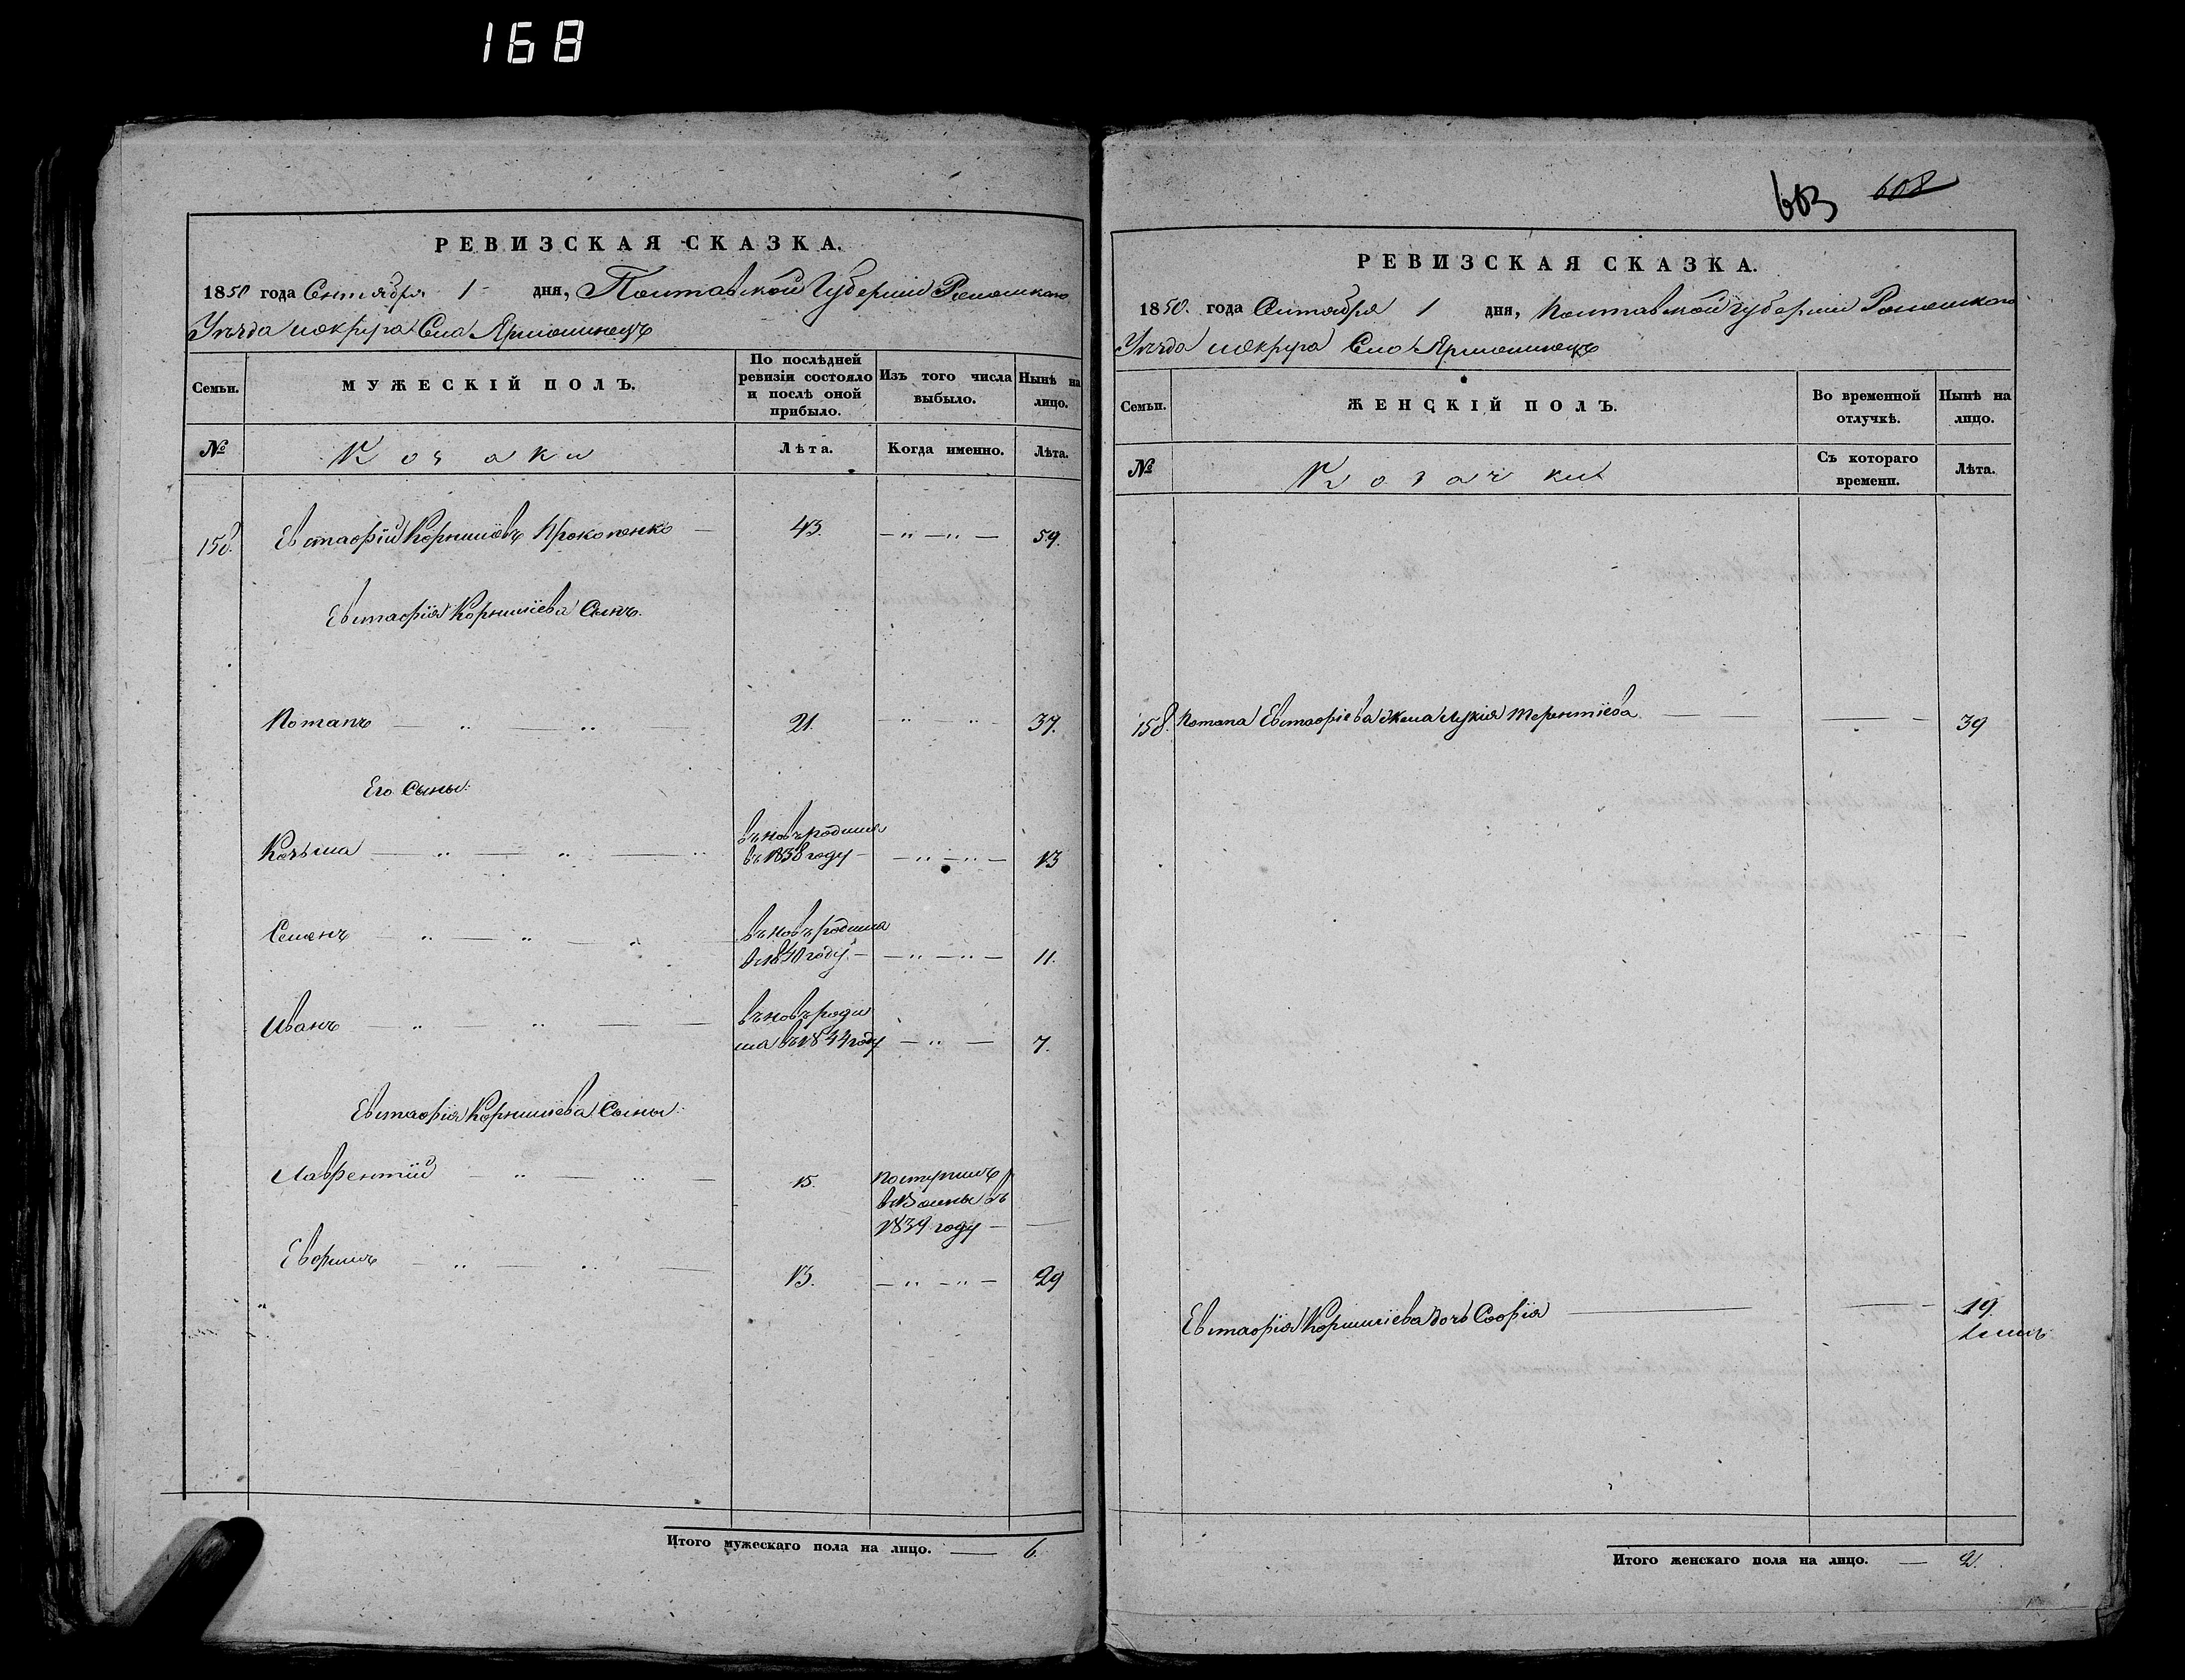 168
РЕВИЗСКАЯ СКАЗКА.
1850 года Сентября 1 дня, Полтавской Губернии Роменскаго
Уезда и округа Села Ярмолинецъ
Семьи.
МУЖЕСКІЙ ПОЛЪ.
По послѣдней ревизіи состояло и послѣ оной прибыло.
Изъ того числа выбыло.
Нынѣ на лицо.
№
Козаки
Лѣта.
Когда именно.
Лѣта.
158. Евстафій Корниліевъ Прокопенко — 43. — " — " — 59.
Евстафія Корниліева Сынъ.
Потапъ — " — " — 21. — " — " 37.
Его Сыны:
Козьма — " — " — " въновьродился
въ 1838 году — — " — " — 13
Семенъ — " — " — " — въновьродился
въ 1840 году. — — " — " — 11.
Иванъ — " — " — — въновьроди
лся въ 1844 году — " — 7.
Евстафія Корниліева Сыны:
Лаврентій — " — " — 15. поступилъ
въ Воины въ
1839 году — —
Ефримъ — " — " — 13. — " — " — 29
Итого мужескаго пола на лицо. — 6.
603 608
РЕВИЗСКАЯ СКАЗКА.
1850. года Октября 1 дня, Полтавской губернии Роменскаго
Уезда и округа Село Ярмолинецъ
Семьи.
ЖЕНСКІЙ ПОЛЪ.
Во временной отлучкѣ.
Нынѣ на лицо.
№
Козачки
Съ котораго времени.
Лѣта.
158. Потапа Евстафіева жена Лукия Терентіева — — — 39
Евстафія Корниліева дочь Софія — — — 19.
Итого женскаго пола на лицо. — 2.